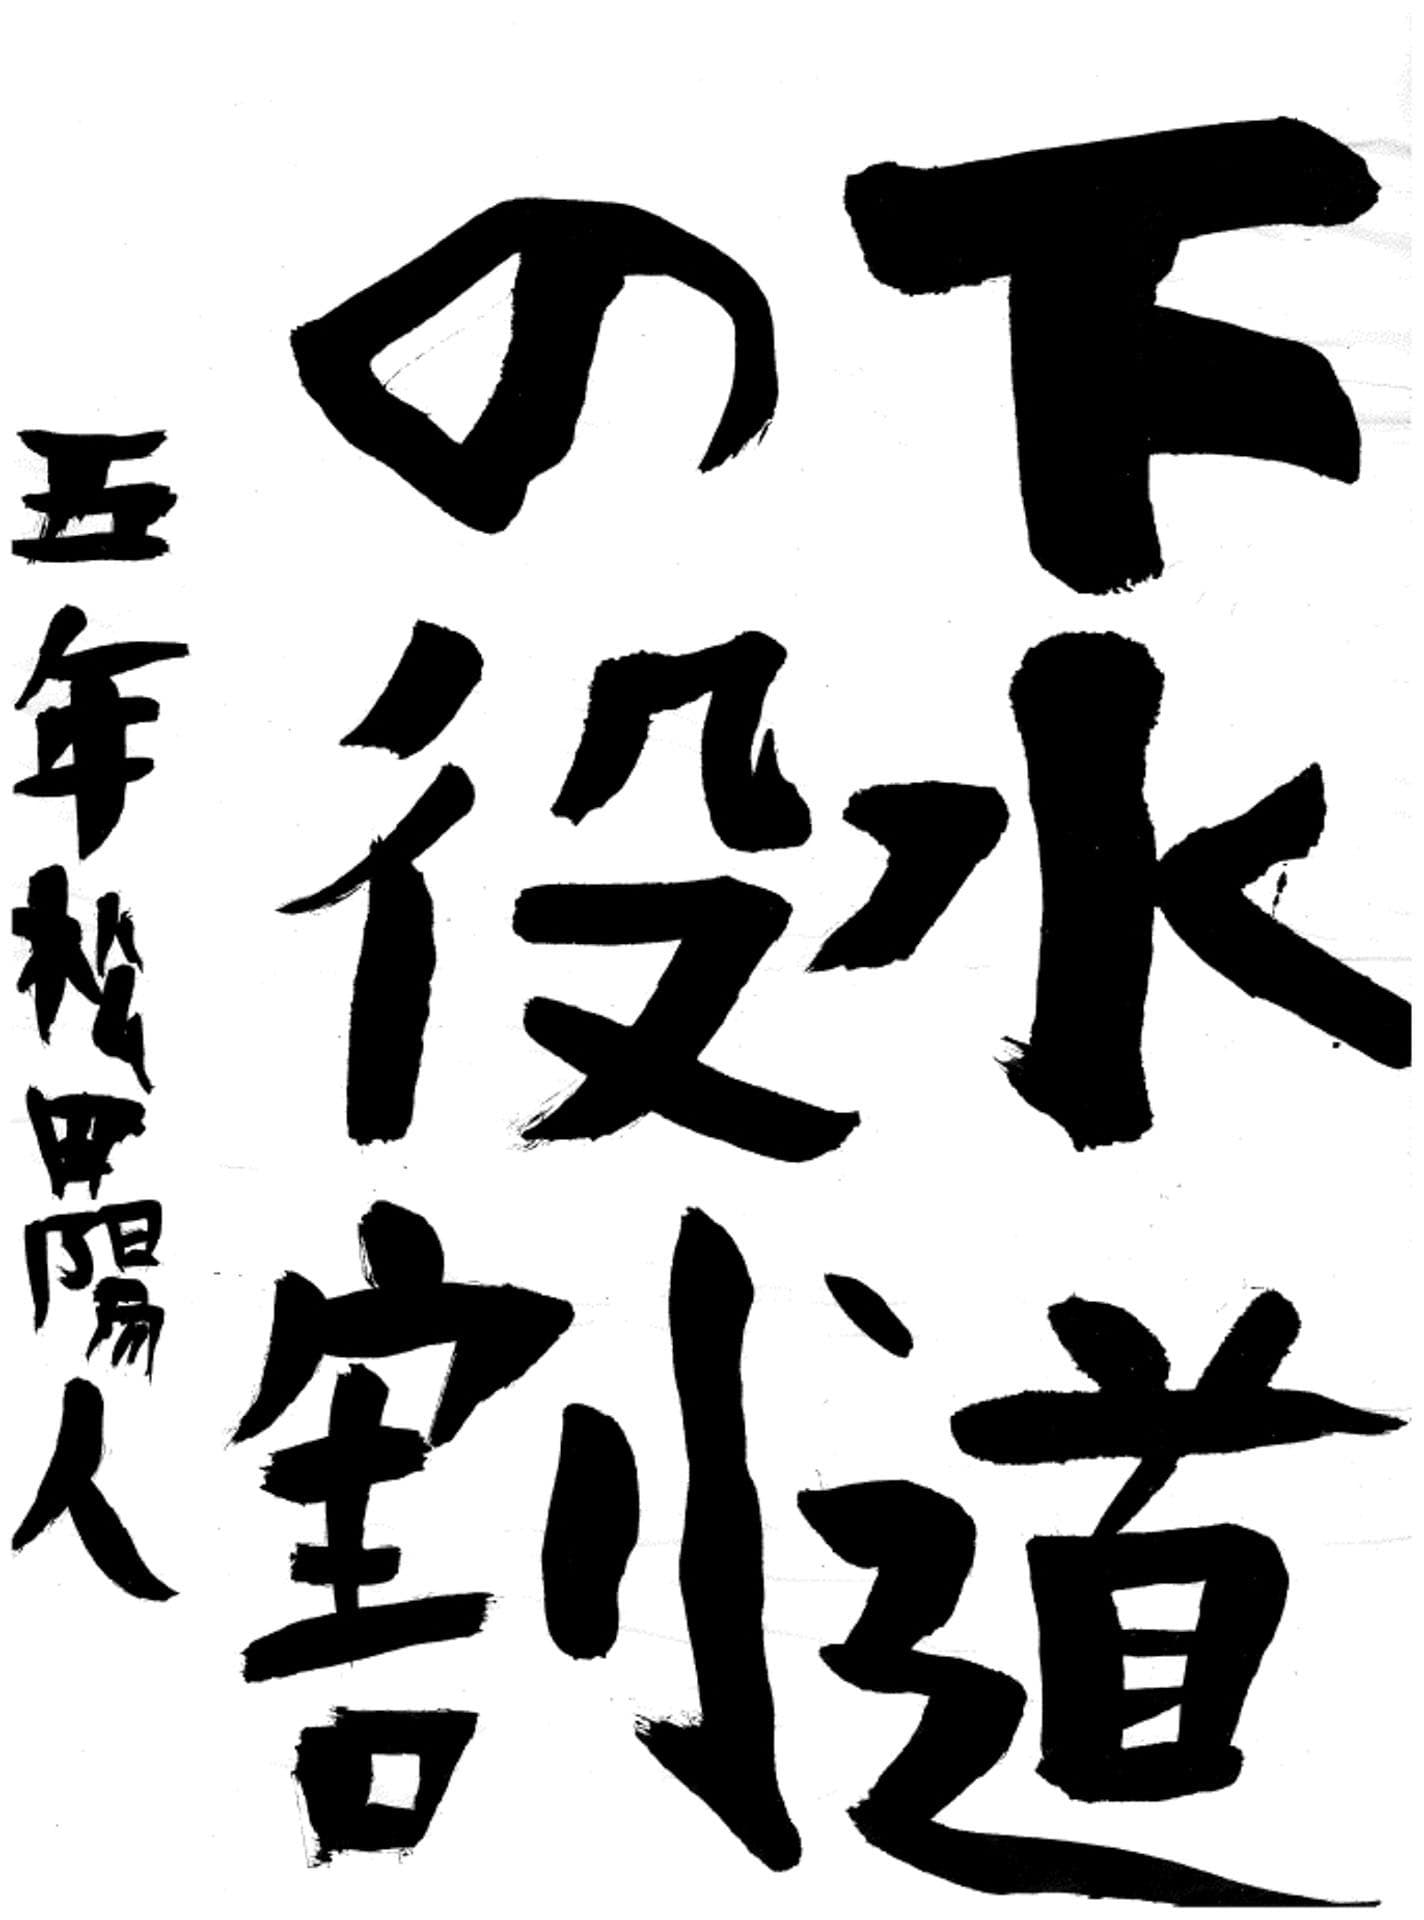 下水道
の役割
五年松田陽人